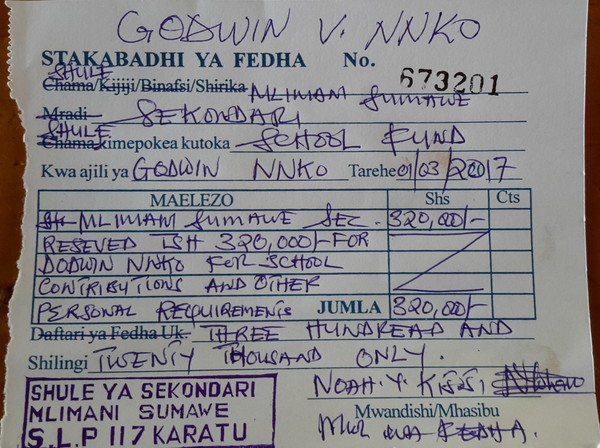 GODWIN V. NNKO
STAKABADHI YA FEDHA No. 673201
SHULE
Chama/Kijiji/Binafsi/Shirika MLIMANI SUMAWE
Mradi SEKONDARI
SHULE
Chama kimepokea kutoka SCHOOL FUND
Kwa ajili ya GODWIN NNKO Tarehe 01/03/2017
MAELEZO Shs Cts
MLIMANI SUMAWE SEC. 320,000/-
RESEVED TSH 320,000/- FOR
DODWIN NNKO FOR SCHOOL
CONTRIBUTIONS AND OTHER
PERSONAL REQUIREMENTS JUMLA 320,000/-
Daftari ya Fedha Uk. THREE HUNDREAD AND
Shilingi TWENTY THOUSAND ONLY.
NOAH. Y.
Mwandishi/Mhasibu
SHULE YA SEKONDARI
MLIMANI SUMAWE
S.L.P 117 KARATU